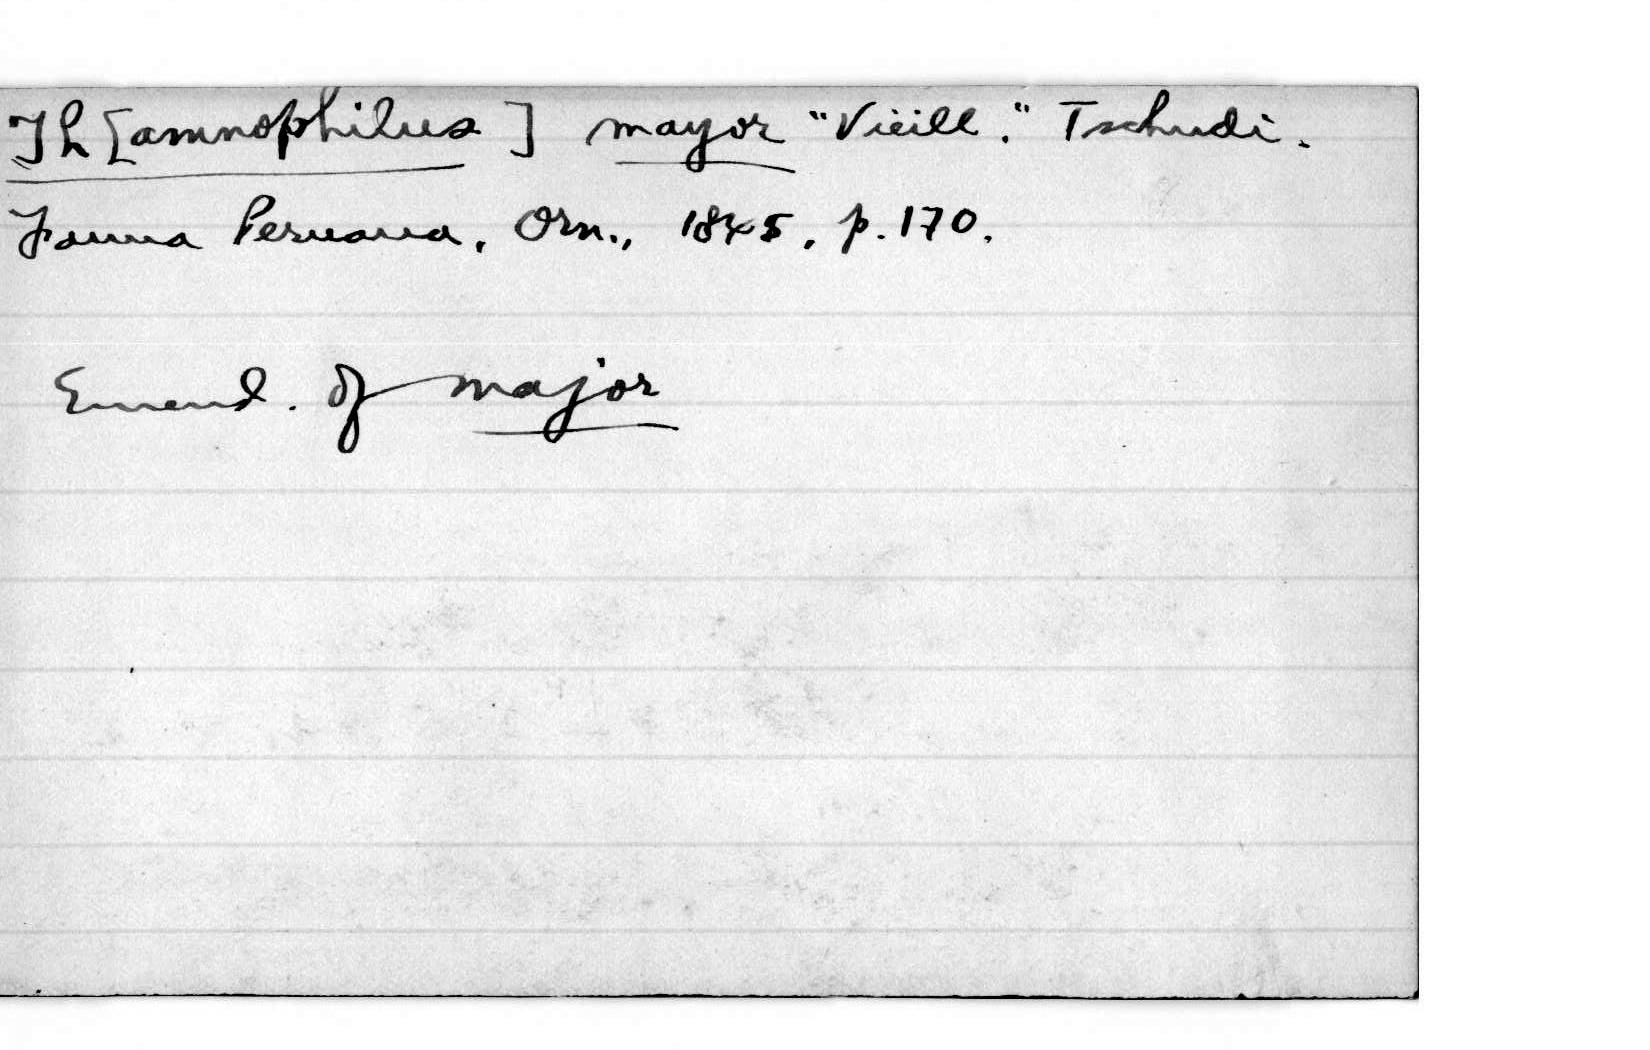 Th[amnophilus] mayor "Vieill." Tschudi.
Fauna Peruana, Orn., 1845, p. 170.
Emend. of major